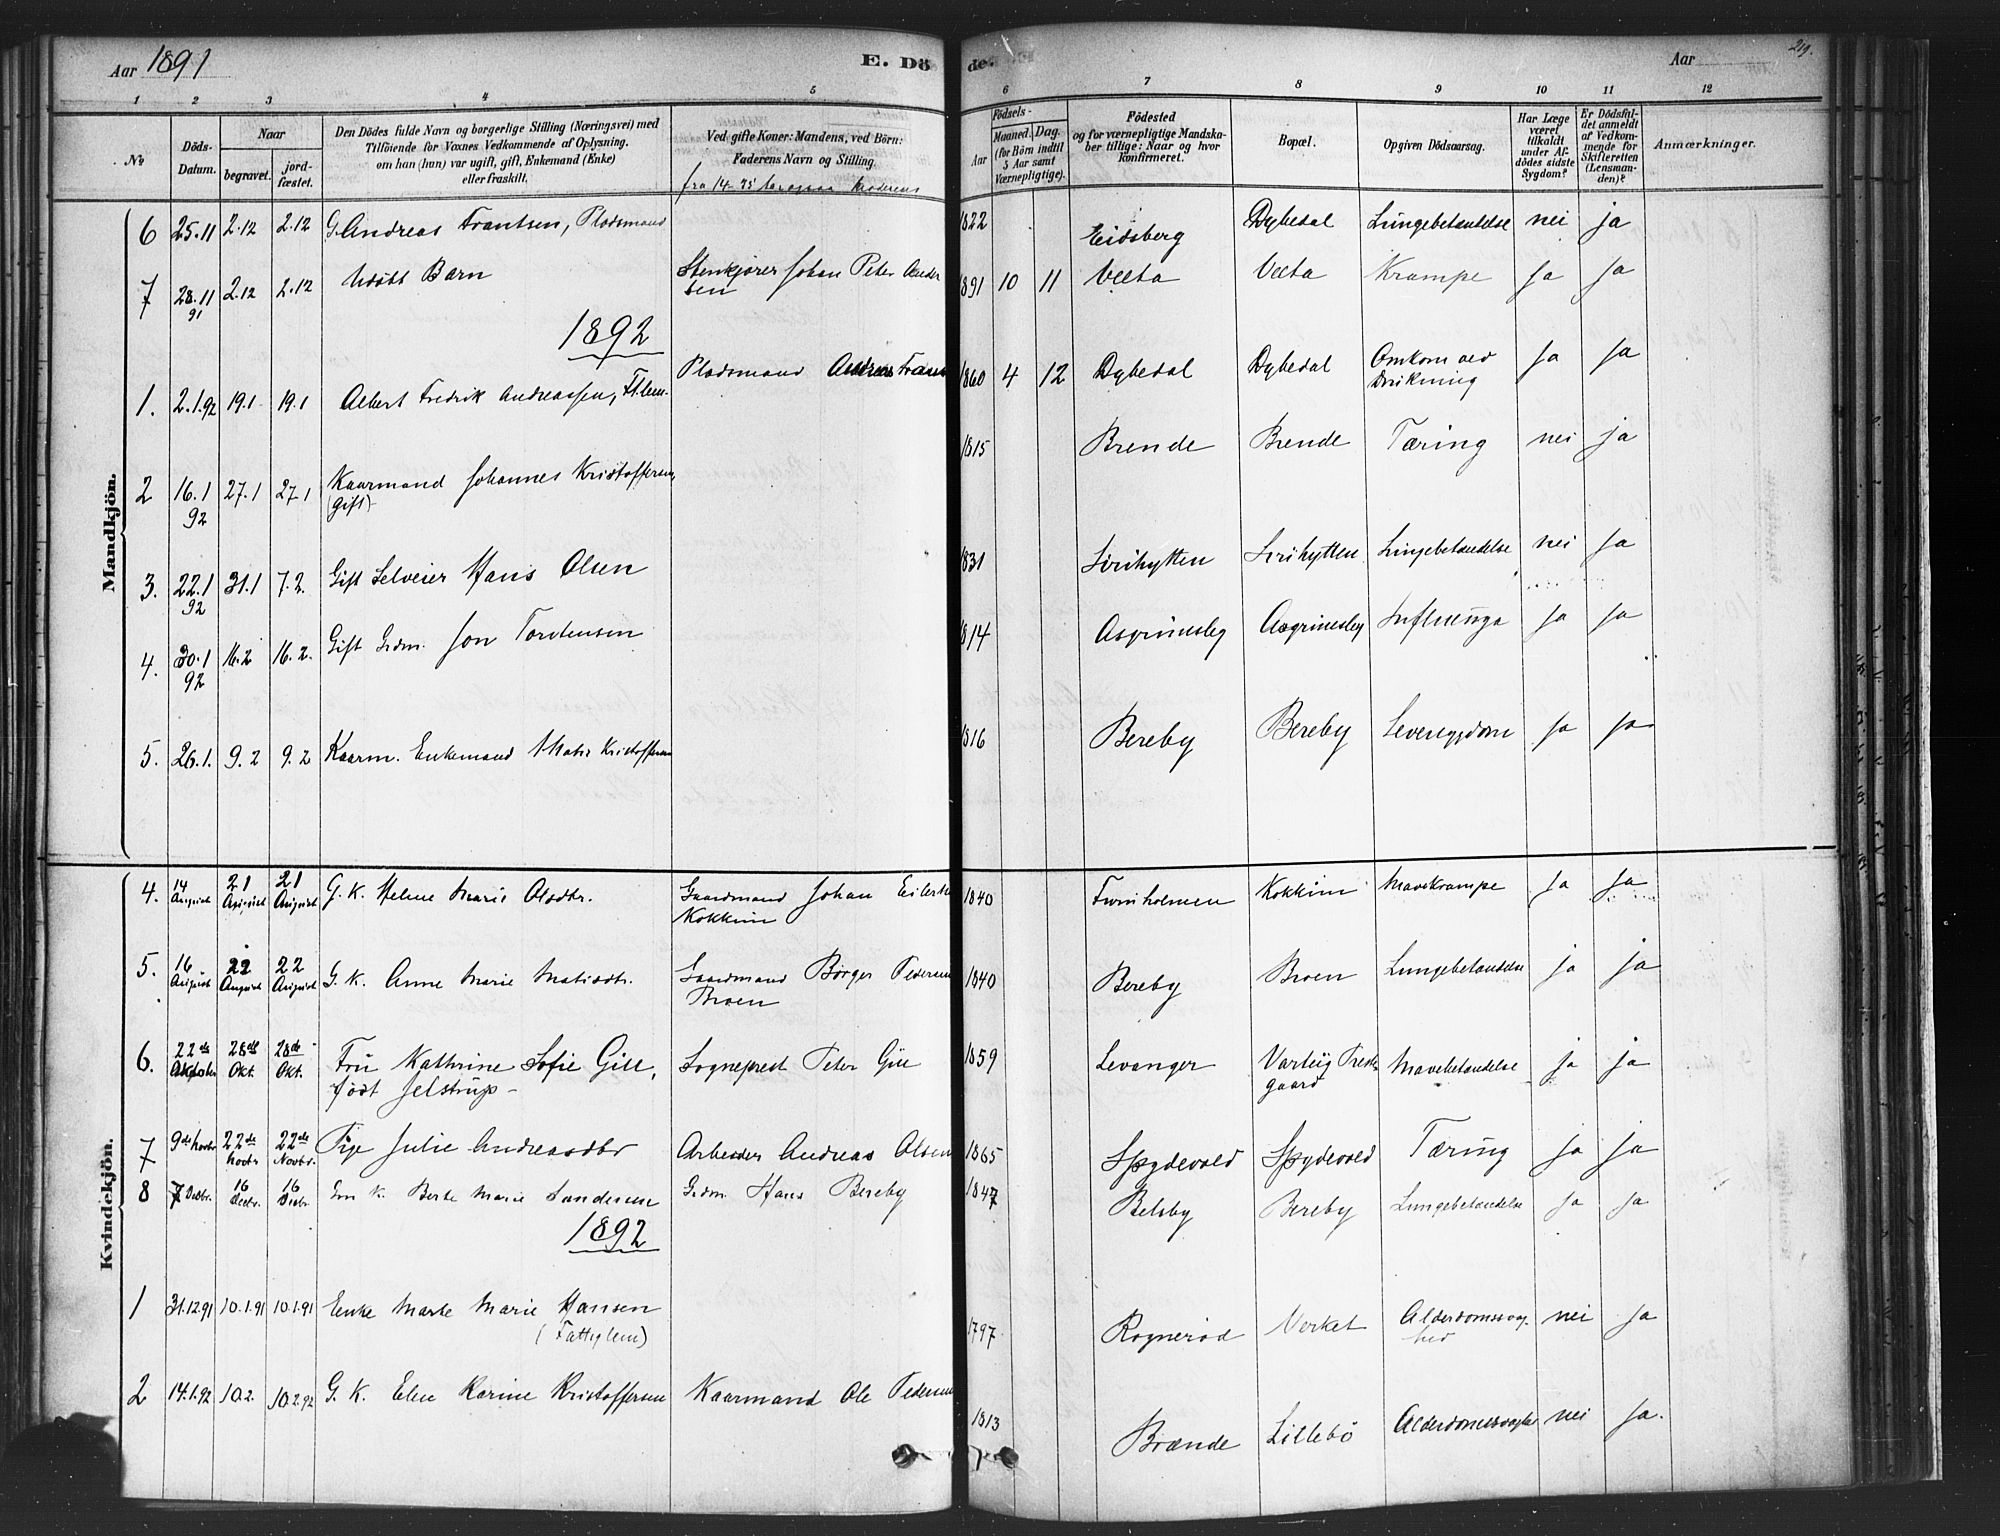 Aar 1891
E. Dö
de.
Aar
219.
1 2 3 4 5 6 7 8 9 10 11 12
No
Döds-Datum.
Naar
begravet.
jord-fæstet.
Den Dödes fulde Navn og borgerlige Stilling (Næringsvei) med
Tilföiende for Voxnes Vedkommende af Oplysning,
om han (hun) var ugift, gift, Enkemand (Enke)
eller fraskilt.
Ved gifte Koner: Mandens, ved Börn:
Faderens Navn og Stilling.
Födsels-
Aar
Maaned. Dag.
(for Börn indtil
5 Aar samt
Værnepligtige).
Födested
og for værnepligtige Mandska-
ber tillige: Naar og hvor
konfirmeret.
Bopæl.
Opgiven Dödsaarsag.
Har Læge
været
tilkaldt
under Af-
dödes sidste
Sygdom?
Er Dödsfal-
det anmeldt
af Vedkom-
mende for
Skifteretten
(Lensman-
den)?
Anmærkninger.
Mandkjön.
6 25.11 2.12 2.12 G. Andreas Frantsen, Pladsmand 1822 Eidsberg Dybedal Lungebetændelse nei ja
7 28.11 91 2.12 2.12 Udöbt Barn Stenkjører Johan Peter Ander
sen 1891 10 11 Væta Væta Krampe Ja Ja
1892
1. 2.1.92 19.1 19.1 Albert Fredrik Andreassen, Pladsmand Andreas Frans 1860 4 12 Dybedal Dybedal Omkom ved
Drukning Ja Ja
2 16.1 92 27.1 27.1 Kaarmand Johannes Kristoffersen,
(gift) 1815 Brende Brende Tæring nei ja
3. 22.1 92 31.1 7.2. Gift Selveier Hans Olsen 1831 Sirihytten Sirihytten Lungebetændelse nei Ja
4. 30.1 92 16.2 16.2. Gift Grdm. Jon Tordensen 1814 Asgrimsby Asgrimsby Influenza Ja Ja
5. 26.1. 9.2 9.2 Kaarm. Enkemand Matis Kristoffersen 1816 Bereby Bereby Leversygdom Ja Ja
Kvindekjön.
4. 14 August 21 August 21 August G. K. Helene Marie Olsdtr. Gaardmand Johan Eilert
Kokkim 1840 Furuholmen Kokkim Mavekrampe Ja Ja
5. 16 August 22 August 22 August G. K. Anne Marie Matisdtr. Gaardmand Börger Pedersen
Broen 1840 Bereby Broen Lungebetændelse ja ja
6. 22de Oktober 28de Okt. 28de Okt. Frú Kathrine Sofie Gill,
födt Jelstrup - Sogneprest Peter Gill 1859 Levanger Varteig Prest
gaard Mavebetændelse ja ja
7 9de Novbr 22de Novbr 22de Novbr. Pige Julie Andreasdtr Arbeider Andreas Olsen 1865 Spydevold Spydevold Tæring ja ja
8 7 Decbr. 16 Decbr. 16 Decbr. Gm K. Berte Marie Grdm. Hans Bereby 1847 Belsby Bereby Lungebetændelse Ja Ja
1892
1 31.12.91 10.1.91 10.1.91 Enke Marte Marie Hansen
(Fattiglem) 1797 Rognerød Verket Alderdomssvag-
hed nei Ja
2 14.1.92 10.2. 10.2.92 G. K. Elen Karine Kristoffersen Kaarmand Ole Pedersen 1813 Brænde Lillebö Alderdomssvaghe nei Ja.